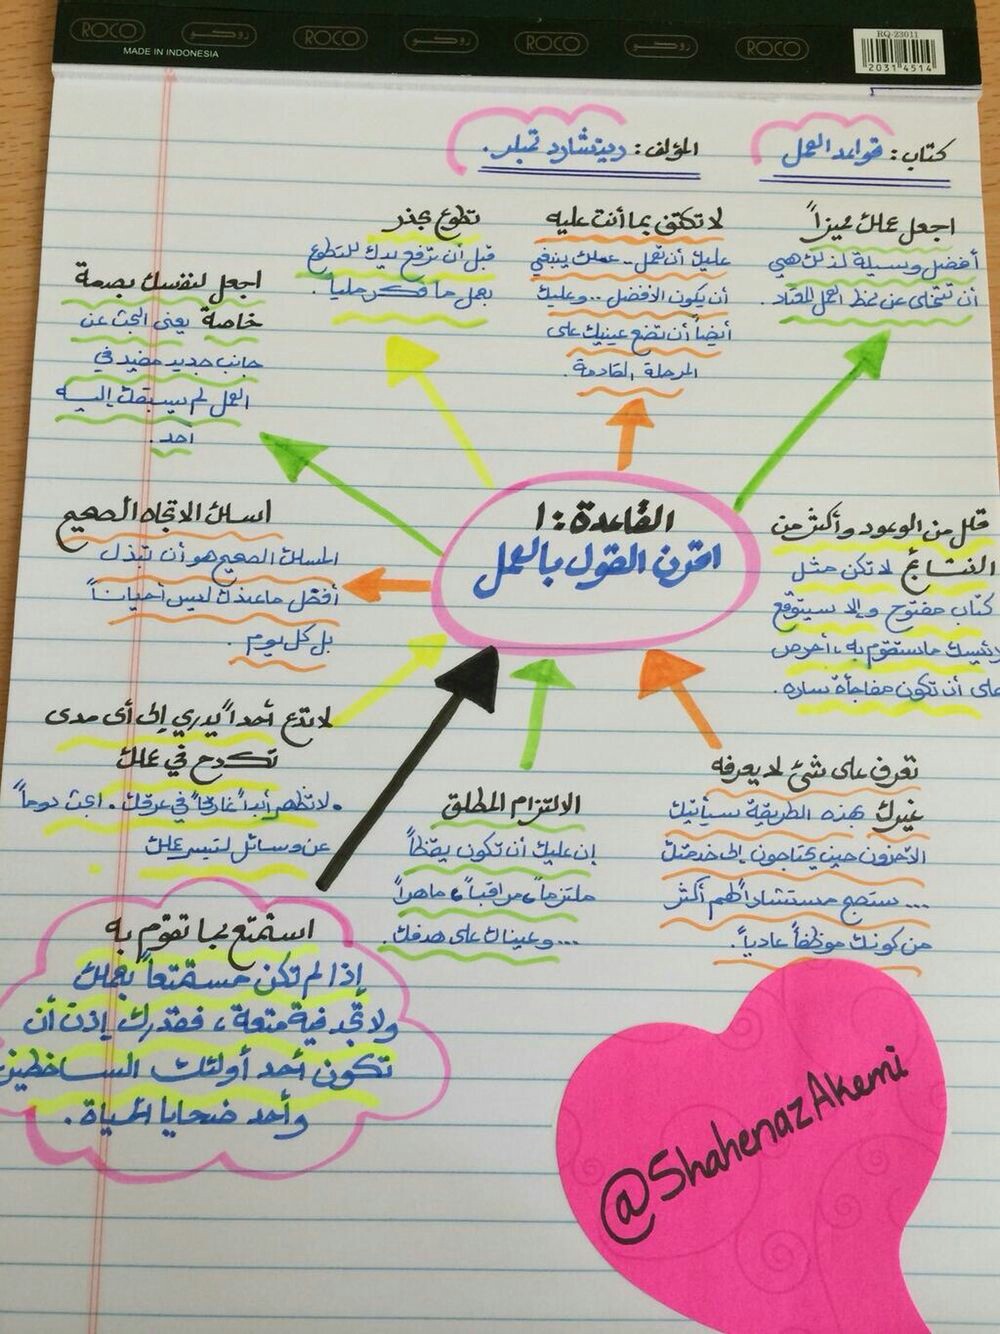 ROCO روكو ROCO روكو ROCO روكو ROCO
MADE IN INDONESIA
RQ-23011
2031 4514
كتاب: قواعد العمل
المؤلف: ريتشارد تمبلر.
اجعل عملك مميزاً
أفضل وسيلة لذلك هي
أن تتخلى عن نمط العمل المعتاد.
لا تكتفي بما أنت عليه
عليك أن تعمل.. عملك ينبغي
أن يكون الأفضل.. وعليك
أيضاً أن تضع عينيك على
المرحلة القادمة.
تطوع بحذر
قبل أن ترفع يدك للتطوع
بعمل ما فكر مليا.
اجعل لنفسك بصمة
خاصة يعني البحث عن
جانب جديد مفيد في
العمل لم يسبقك إليه
أحد.
القاعدة: ١
اقرن القول بالعمل
قلل من الوعود وأكثر من
النتائج لا تكن مثل
كتاب مفتوح وإلا سيتوقع
رئيسك ما ستقوم به، احرص
على أن تكون مفاجأة ساره.
اسلك الاتجاه الصحيح
المسلك الصحيح هو أن تبذل
أفضل ما عندك ليس أحياناً
بل كل يوم.
لا تدع أحداً يدري إلى أي مدى
تكدح في عملك
لا تظهر أبداً غارقاً في عرقك. ابحث دوماً
عن وسائل لتيسير عملك
الالتزام المطلق
إن عليك أن تكون يقظاً
ملتزماً، مراقباً، ماهراً
... وعيناك على هدفك.
تعرف على شئ لا يعرفه
غيرك بهذه الطريقة سيأتيك
الآخرون حين يحتاجون إلى خدمتك
... ستصبح مستشاراً لهم أكثر
من كونك موظفاً عادياً.
استمتع بما تقوم به
إذا لم تكن مستمتعاً بعملك
ولا تجد فية متعة، فقدرك إذن أن
تكون أحد أولئك الساخطين
وأحد ضحايا الحياة.
@ShahenazAkemi